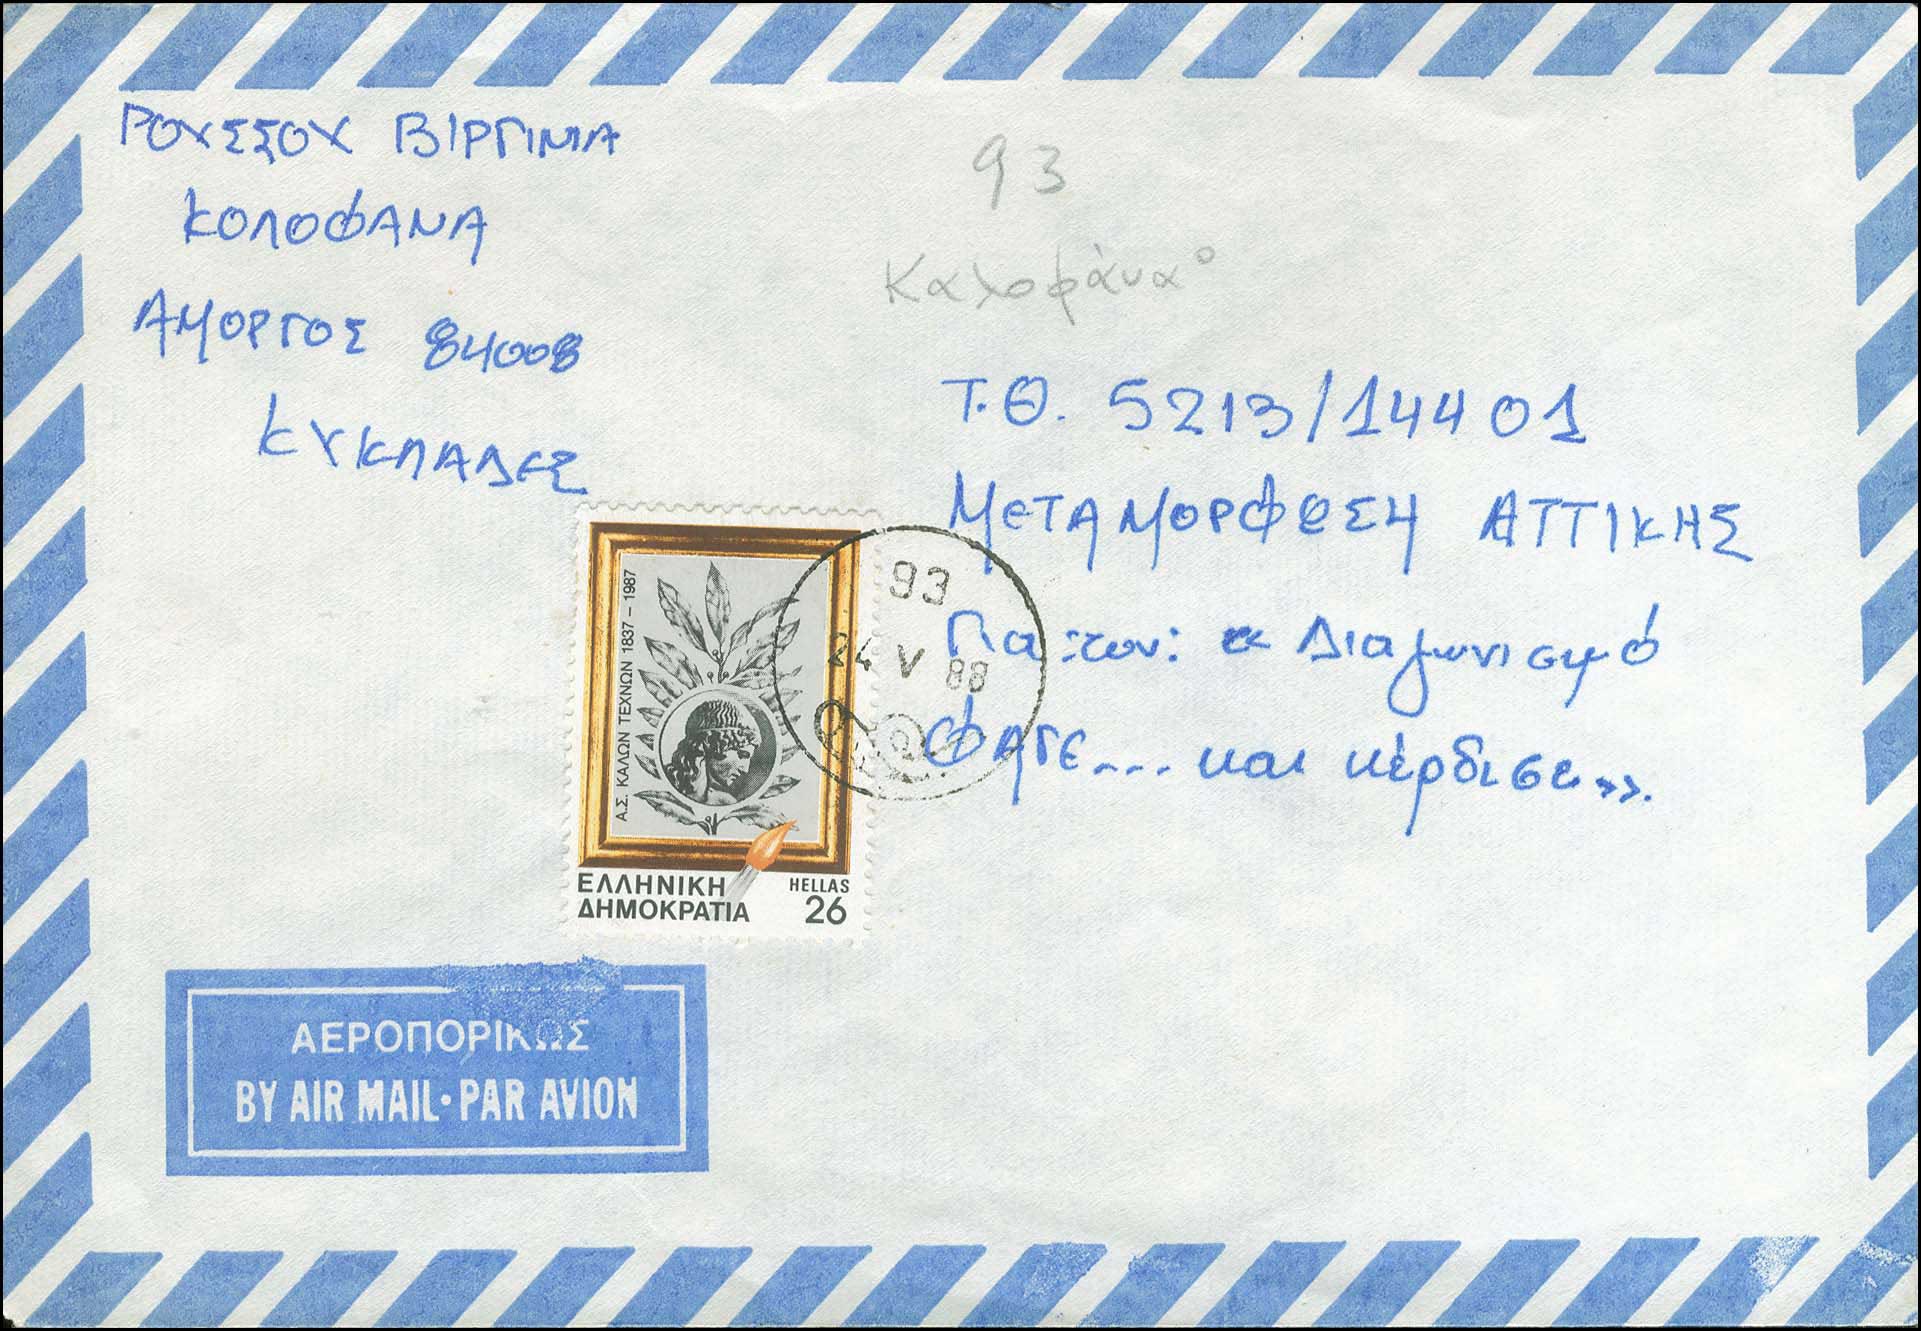 ΡΟΥΣΣΟΥ ΒΙΡΓΙΝΙΑ
ΚΟΛΟΦΑΝΑ
ΑΜΟΡΓΟΣ 84008
ΚΥΚΛΑΔΕΣ
93
Καλοφάνα
Τ.Θ. 5213/14401
ΜεΤΑΜΟΡΦΩΣΗ ΑΤΤΙΚΗΣ
Για:τον: « Διαγωνισμό
ΦΑΓε.... και κέρδισε».
93
24 V 88
Α.Σ. ΚΑΛΩΝ ΤΕΧΝΩΝ 1837 – 1987
ΕΛΛΗΝΙΚΗ
ΔΗΜΟΚΡΑΤΙΑ
HELLAS
26
ΑΕΡΟΠΟΡΙΚΩΣ
BY AIR MAIL·PAR AVION